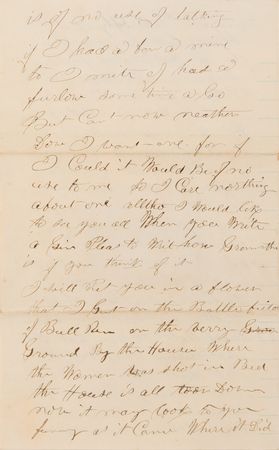 is of no use of talking
if I had a bin a mine
to I mite of had a
furlow some time a Go
But Cant now neather
dow I want one for if
I Could it Would Be of no
use to me So I Care northing
about one altho I Would like
to see you all When you Write
a Gin Pleas to Writ how Granmother
is if you think of it
I will Put you in a flower
that I Got on the Battle field
of Bull Run on the verry
Ground By the House Where
the Women Was shot in Bed
the House is all toor Down
now it may look to you
funy as it Came Where it Did